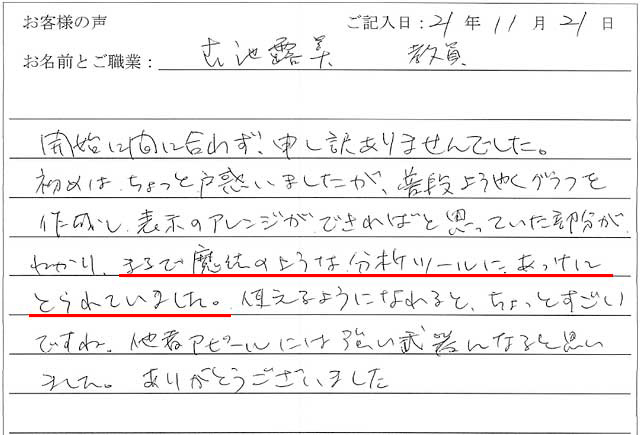 お客様の声 ご記入日：21年11月21日
お名前とご職業： 古池露美 教員
開始に間に合わず、申し訳ありませんでした。
初めは、ちょっと戸惑いましたが、普段ようやくグラフを
作成し、表示のアレンジができればと思っていた部分が
わかり、まるで魔法のような分析ツールに、あっけに
とられていました。使えるようになれると、ちょっとすごい
ですね。他者アピールには強い武器んなると思い
ました。ありがとうございました